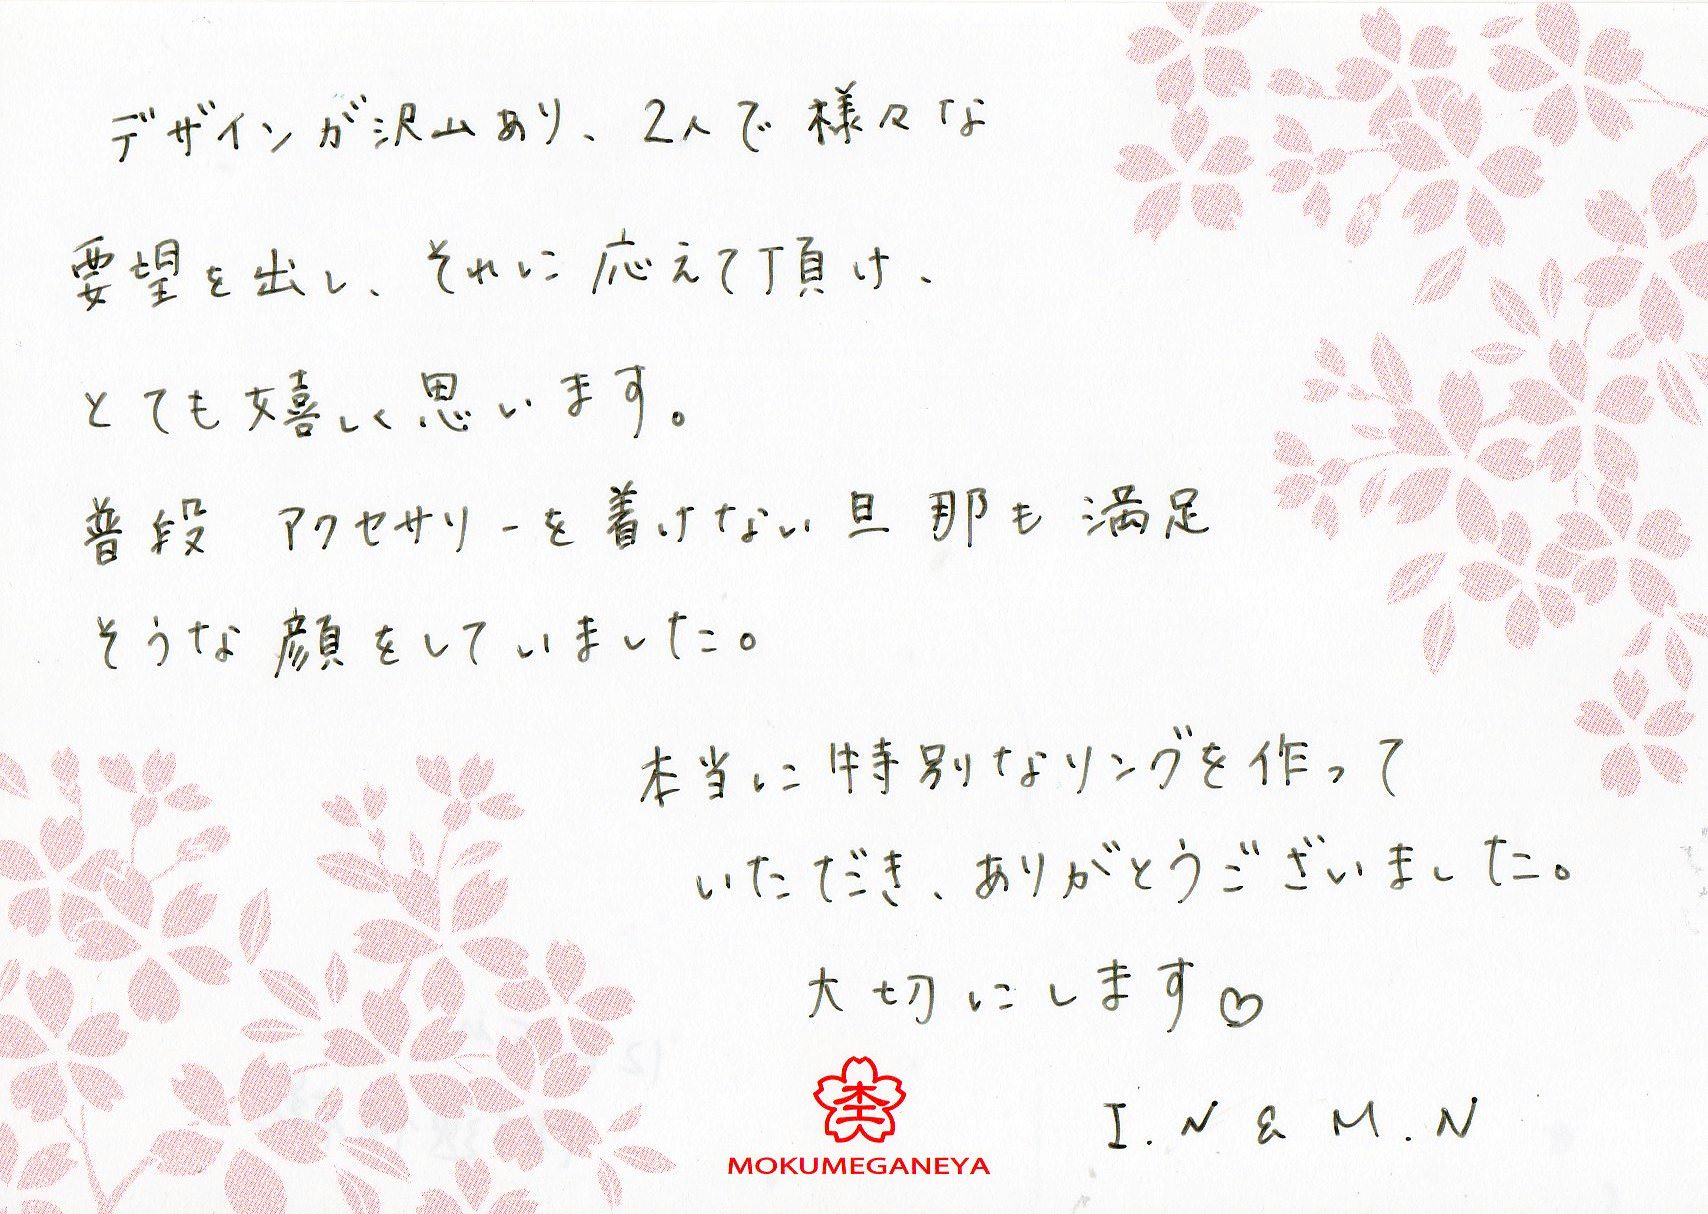 デザインが沢山あり、2人で様々な
要望を出し、それに応えて頂け、
とても嬉しく思います。
普段 アクセサリーを着けない旦那も満足
そうな顔をしていました。
本当に特別なリングを作って
いただき、ありがとうございました。
大切にします♡
I.N & M.N
MOKUMEGANEYA